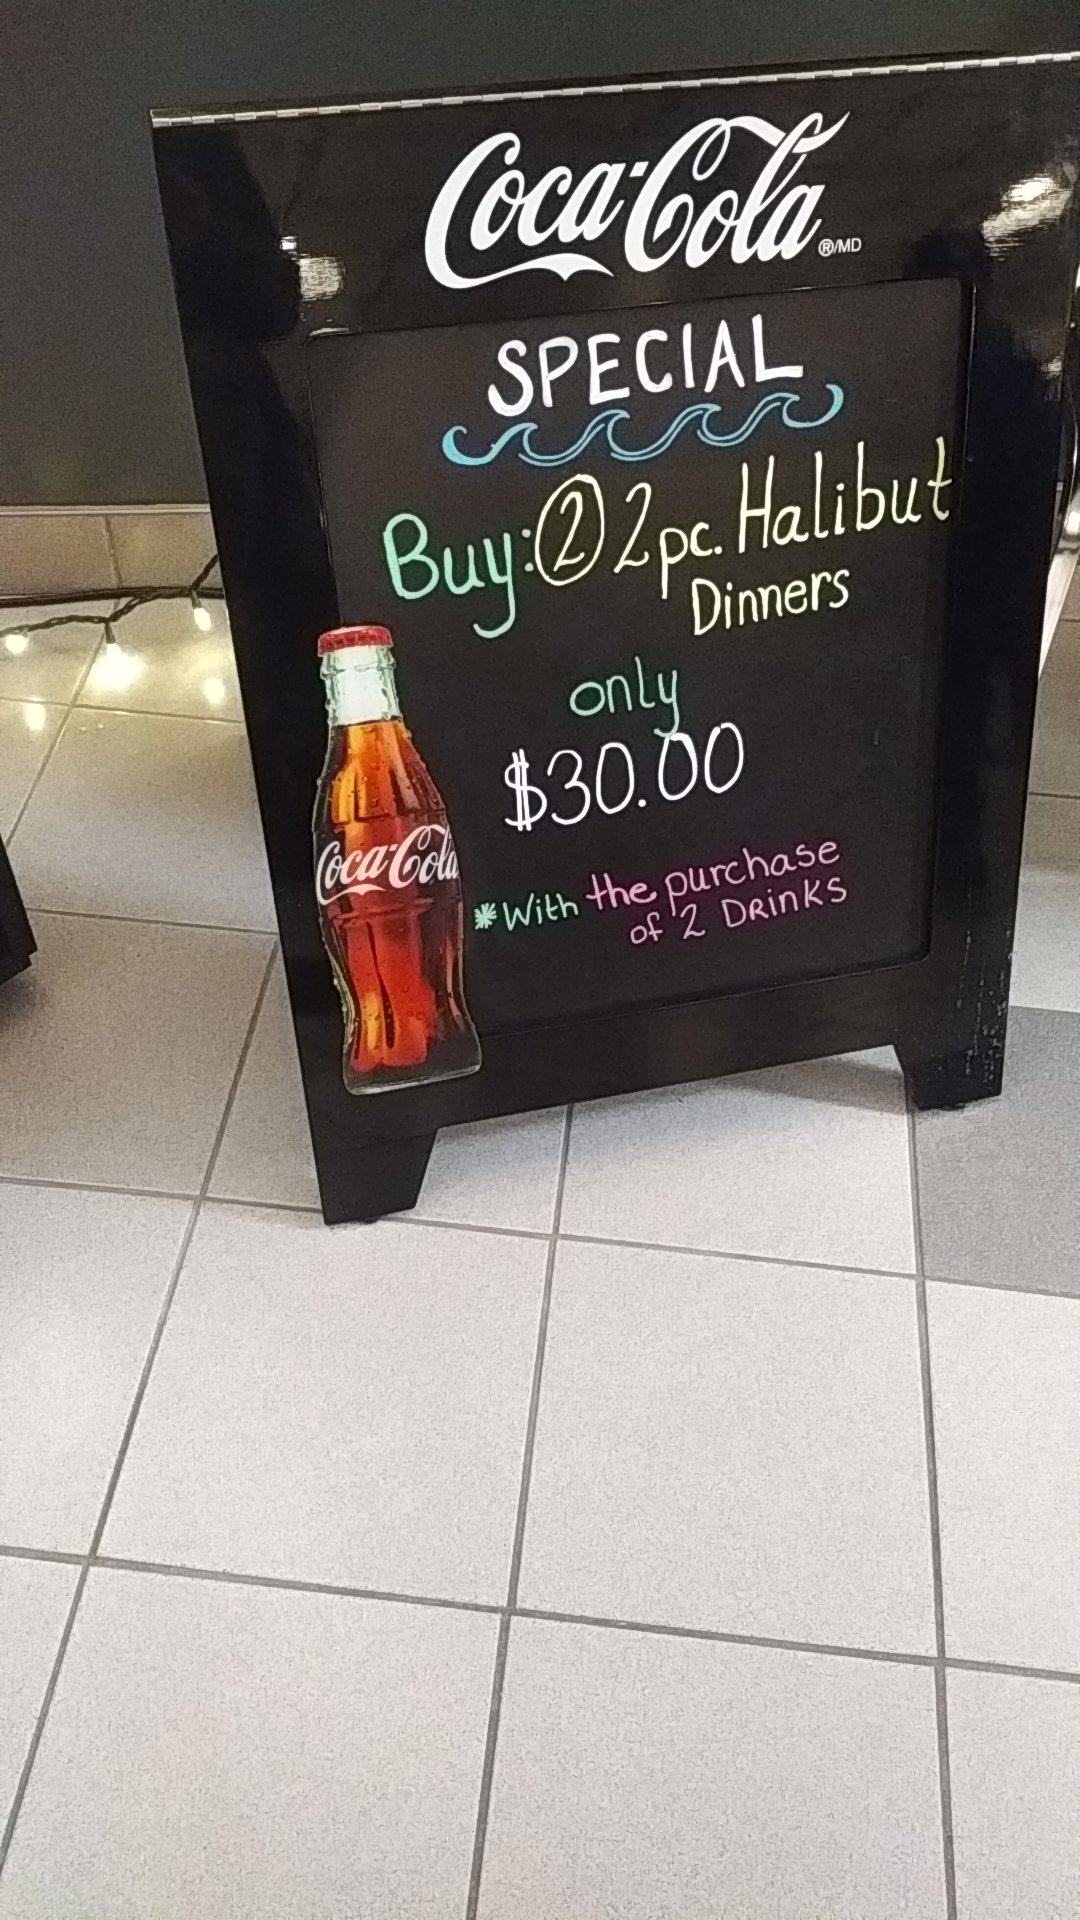 Coca-Cola ®/MD
SPECIAL
Buy: 2 2pc. Halibut
Dinners
only
$30.00
Coca-Cola
*With the purchase
of 2 DRINKS